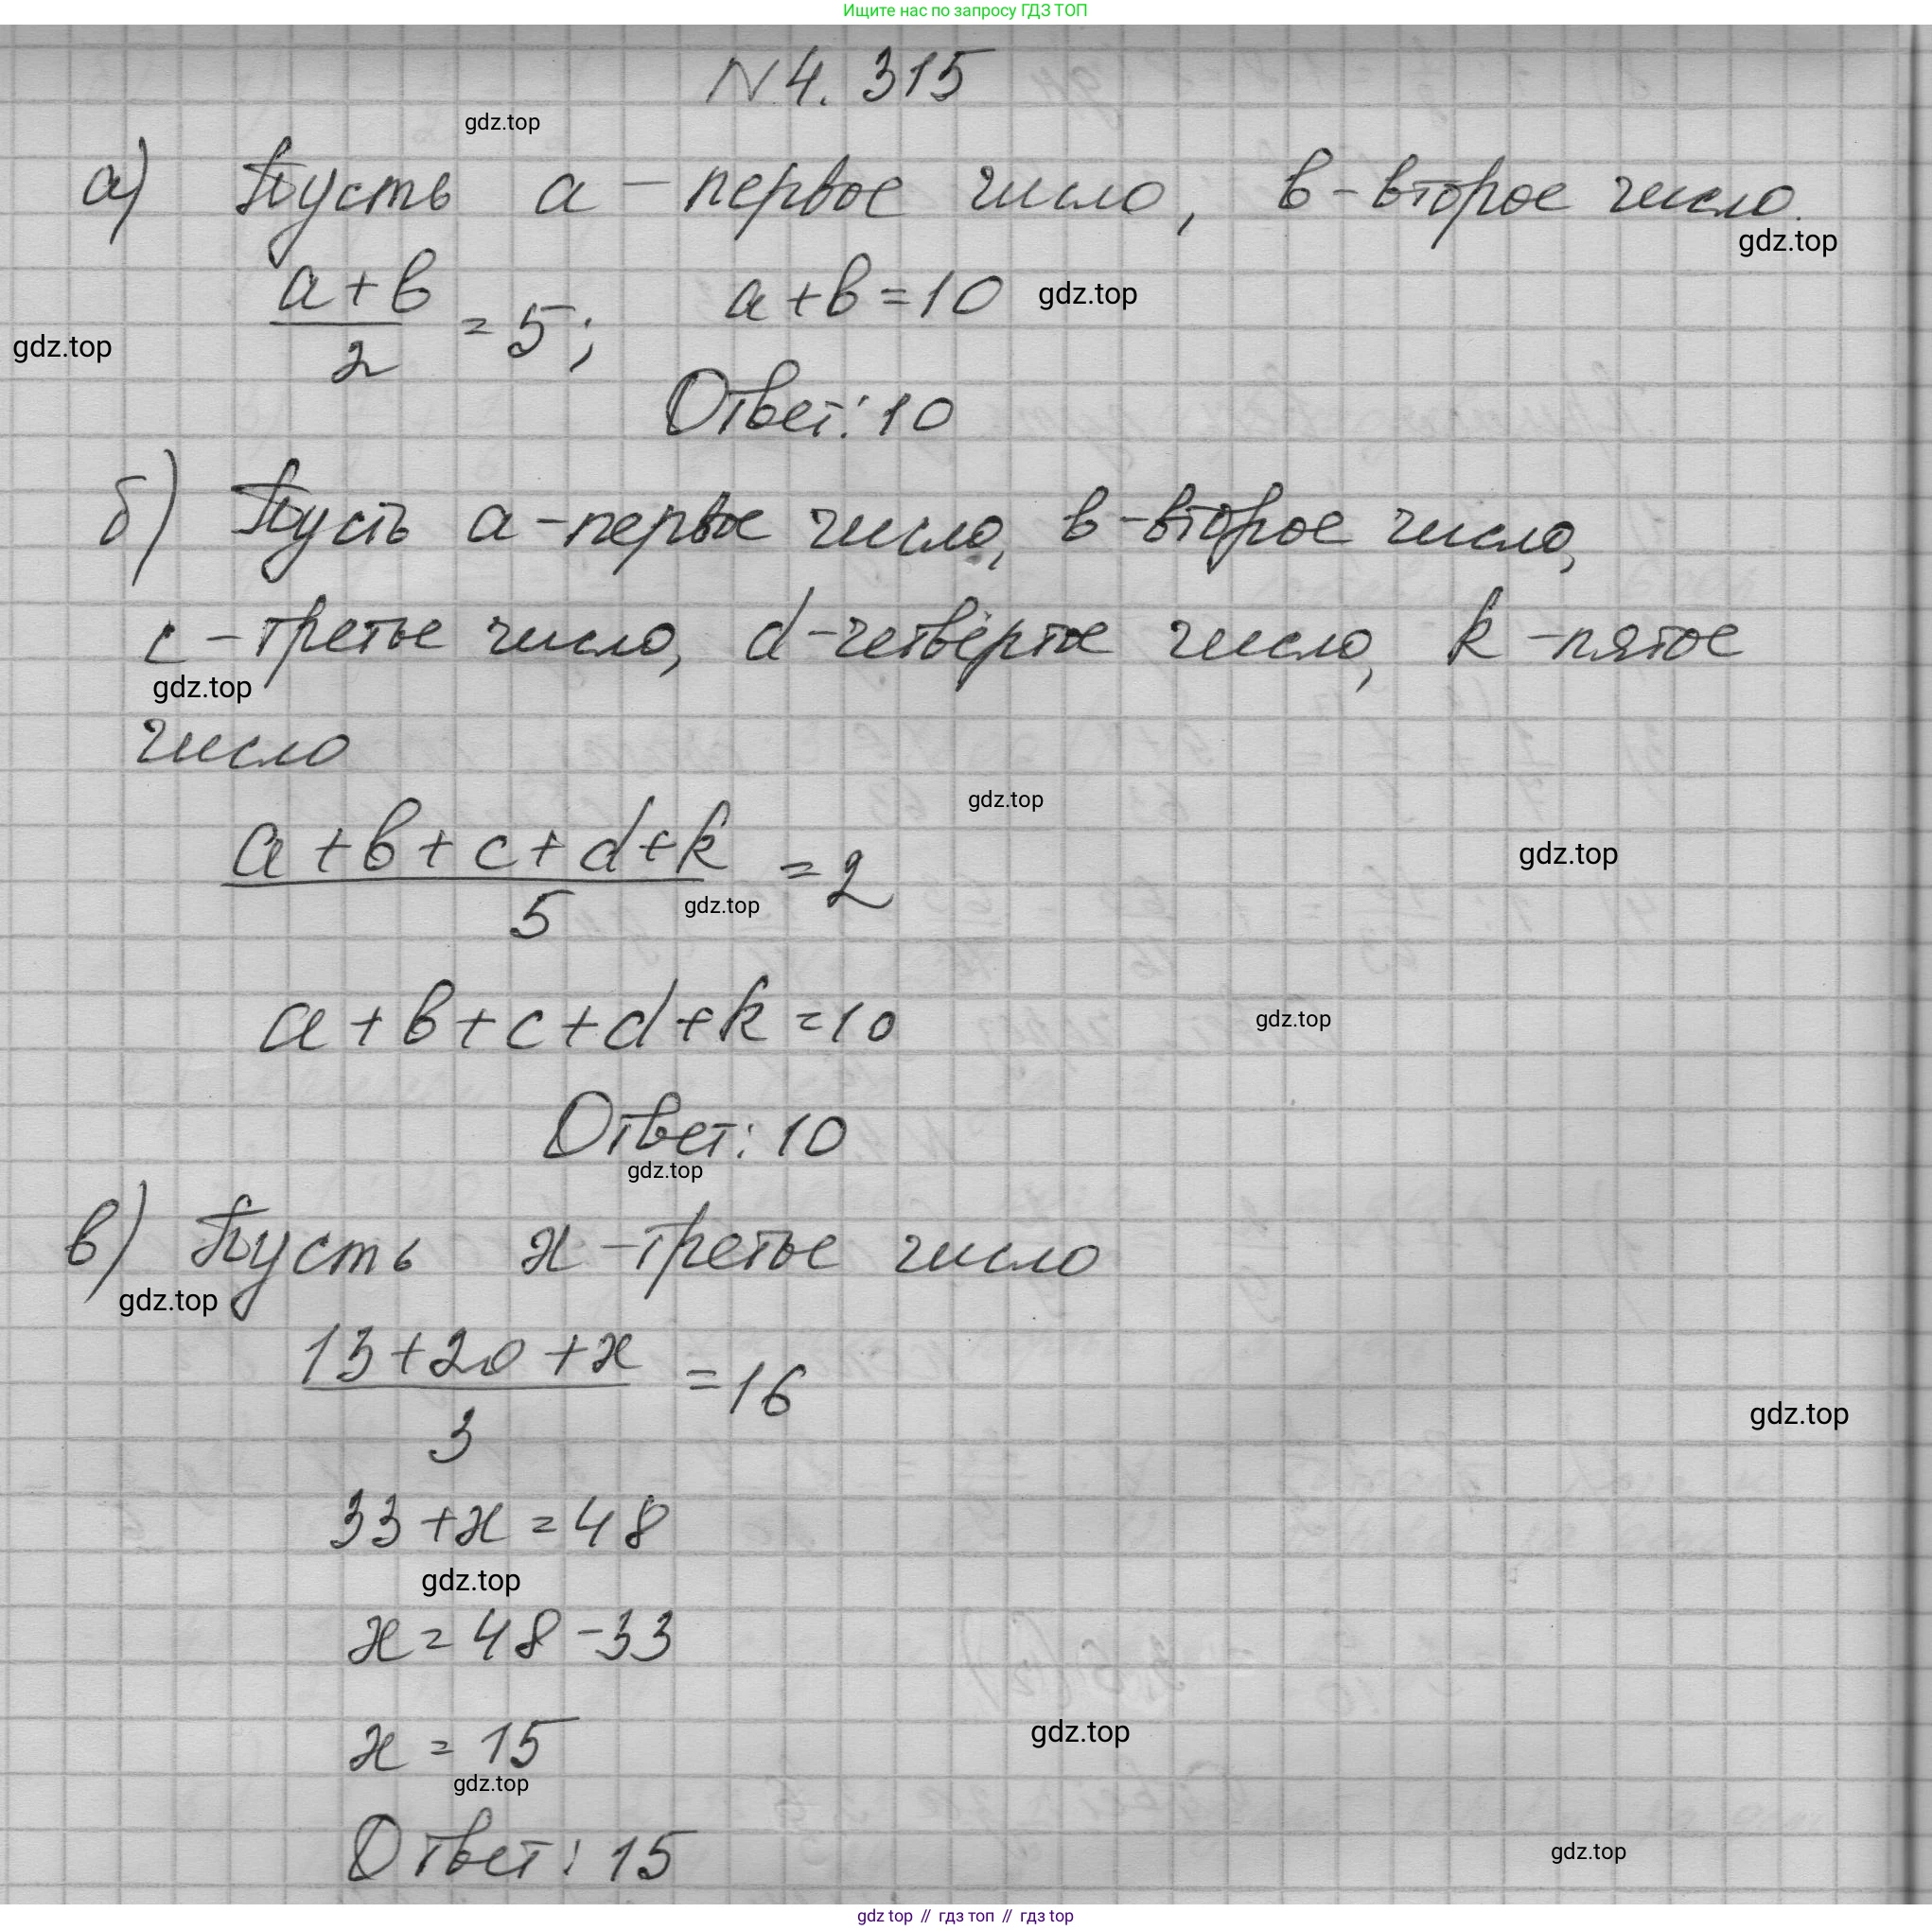 Ищите нас по запросу ГДЗ ТОП
N 4. 315
gdz.top
а) Пусть a - первое число, в - второе число.
gdz.top
(a + в)/2 = 5; a + в = 10 gdz.top
gdz.top
Ответ: 10
б) Пусть a - первое число, в - второе число,
c - третье число, d - четвёртое число, k - пятое
gdz.top
число
gdz.top
(a + в + c + d + k)/5 = 2
gdz.top
gdz.top
a + в + c + d + k = 10
gdz.top
Ответ: 10
gdz.top
в) Пусть x - третье число
gdz.top
(13 + 20 + x)/3 = 16
gdz.top
33 + x = 48
gdz.top
x = 48 - 33
gdz.top
x = 15
gdz.top
Ответ: 15
gdz.top
gdz top // гдз топ // гдз top